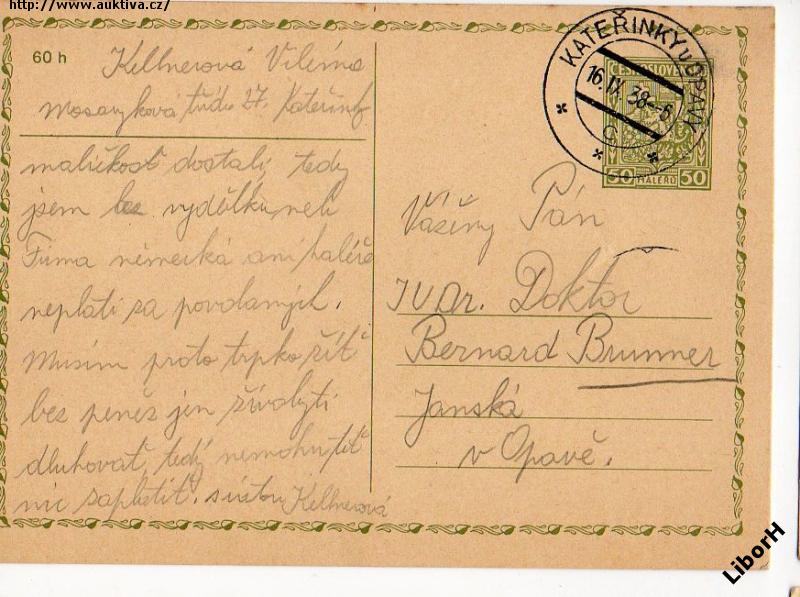 http://www.auktiva.cz/
60 h
Kellnerová Vilema
Masaryková třída 27. Kateřinky
maličkost dostali, tedy
jsem bez vydělku, neb
Firma německá ani haléře
neplatí za povolaných.
Musím proto trpko žít
bez peněz jen živobytí
dluhovat, tedy nemohu teť
nic zaplatit. s úctou Kellnerová
KATEŘINKY u OPAVY
16.IX 38-6
ČESKOSLOVE
50 HALÉŘŮ 50
Vážený Pán
JUDr. Doktor
Bernard Brunner
Janská
v Opavě.
LiborH